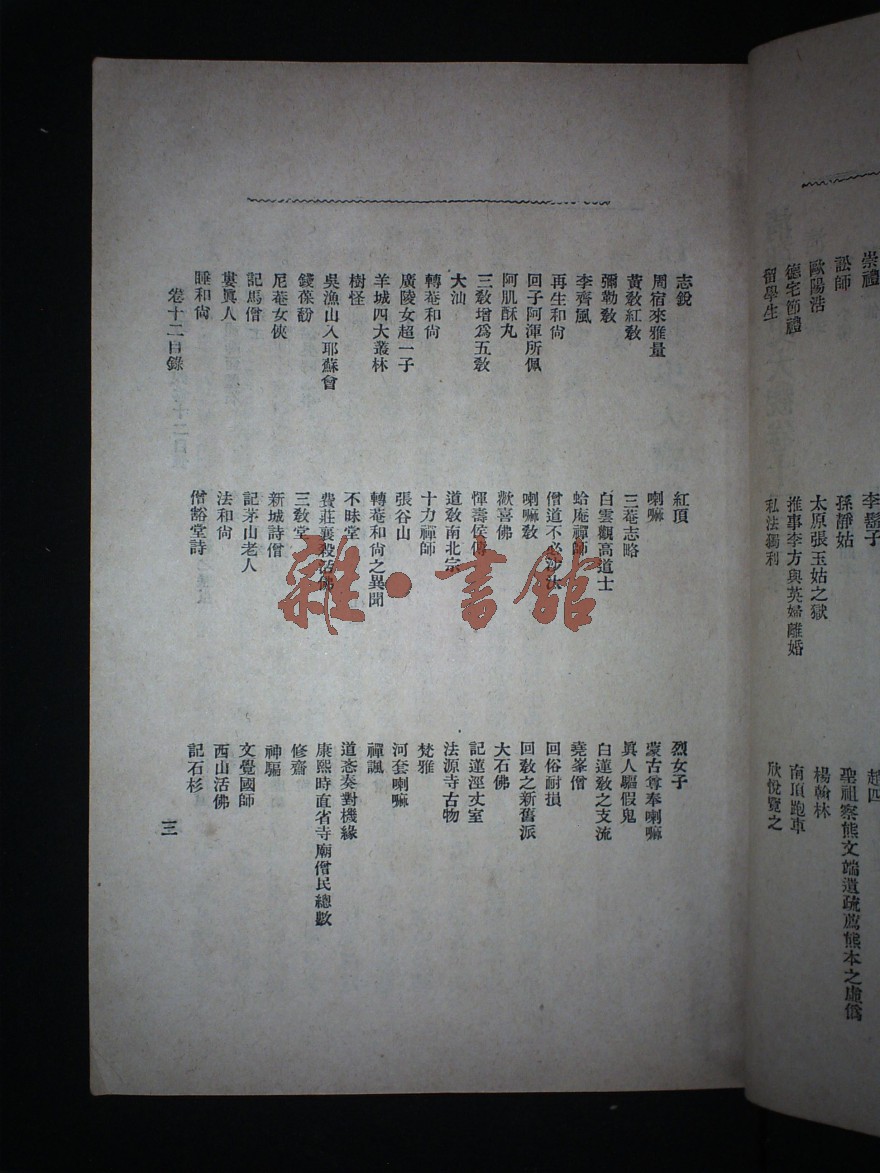 崇禮 李鬍子 趙四
訟師 孫靜姑 聖祖察熊文端遺疏薦熊本之虛僞
歐陽浩 太原張玉姑之獄 楊翰林
德宅節禮 推事李方與英婦離婚 南頂跑車
留學生 私法獨利 欣悅覽之
志銳 紅頂 烈女子
周宿來雅量 喇嘛 蒙古尊奉喇嘛
黃敎紅敎 三菴志略 眞人驅假鬼
彌勒敎 白雲觀高道士 白蓮敎之支流
李齊風 蛤庵禪師 堯峯僧
再生和尙 僧道不必沙汰 回俗耐損
回子阿渾所佩 喇嘛敎 回敎之新舊派
阿肌酥丸 歡喜佛 大石佛
三敎增爲五敎 惲壽侯傳 記蓮涇丈室
大汕 道敎南北宗 法源寺古物
轉菴和尙 十力禪師 梵雅
廣陵女超一子 張谷山 河套喇嘛
羊城四大叢林 轉菴和尙之異聞 禪諷
樹怪 不昧堂 道忞奏對機緣
吳漁山入耶蘇會 費莊襄殺活佛 康熙時直省寺廟僧民總數
錢葆馚 三敎堂 修齋
尼菴女俠 新城詩僧 神騙
記馬僧 記茅山老人 文覺國師
婁眞人 法和尙 西山活佛
睡和尙 僧豁堂詩 記石杉
卷十二目錄 三
雜·書館